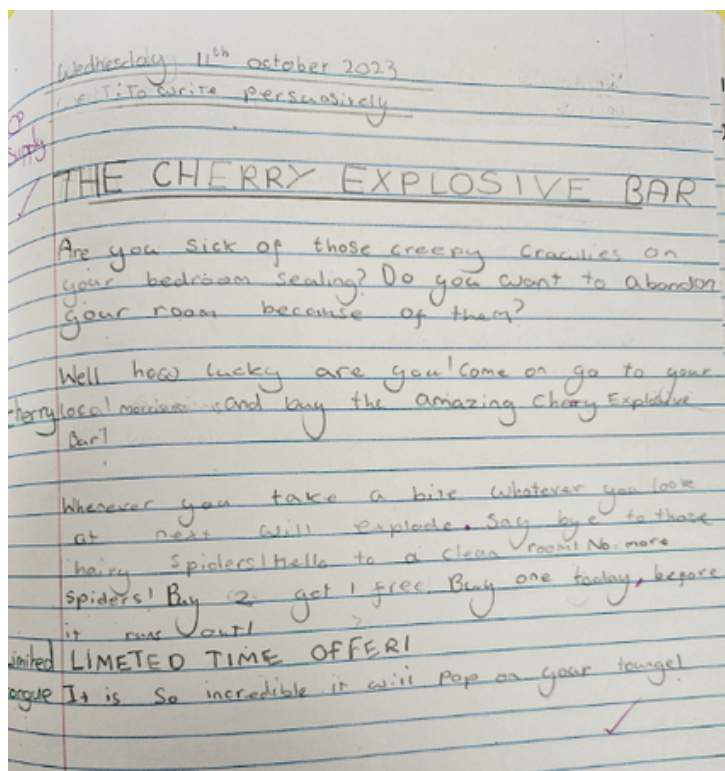 Wednesday 11th october 2023
To write persuasively
CP
Supply
THE CHERRY EXPLOSIVE BAR
Are you sick of those creepy craculies on
your bedroom sealing? Do you want to abandon
your room because of them?
Well how lucky are you! Come on go to your
cherry local and buy the amazing Cherry Explosive
Bar!
Whenever you take a bite whatever you look
at next will explode. Say bye to those
hairy spiders! hello to a clean room! No more
spiders! Buy 2 get 1 free. Buy one today, before
it runs out!
limited LIMETED TIME OFFER!
tongue It is so incredible it will pop on your tounge!